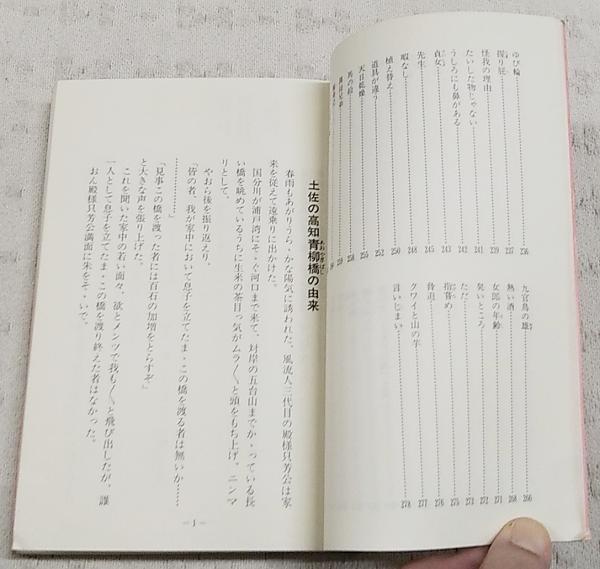 ゆび輪 236
握り屁 237
怪我の理由 239
たいした物じゃない 241
うしろにも鼻がある 242
貞女 243
先生 245
暇なし 248
植え替え 250
道具が違う 252
天日乾燥 255
馬の絵 258
九官鳥の雄 266
熱い酒 268
女郎の年齢 271
臭いところ 272
ただ 273
指嘗め 275
脅迫 276
クワイと山の芋 277
言いじまい 278
土佐の高知青柳橋の由来
春雨もあがりうらゝかな陽気に誘われた、風流人三代目の殿様只芳公は家
来を従えて遠乗りに出かけた。
国分川が浦戸湾にそゝぐ河口まで来て、対岸の五台山までかゝっている長
い橋を眺めているうちに生来の茶目っ気がムラ〱と頭をもち上げ、ニンマ
リとして、
やおら後を振り返えり、
「皆の者、我が家中において息子を立てたまゝこの橋を渡る者は無いか……
………………」
「見事この橋を渡った者には百石の加増をとらすぞ」
と大きな声を張り上げた。
これを聞いた家中の若い面々、欲とメンツで我も〱と飛び出したが、誰
一人として息子を立てたまゝこの橋を渡り終えた者はなかった。
おん殿様只芳公満面に朱をそゝいで、
— 1 —